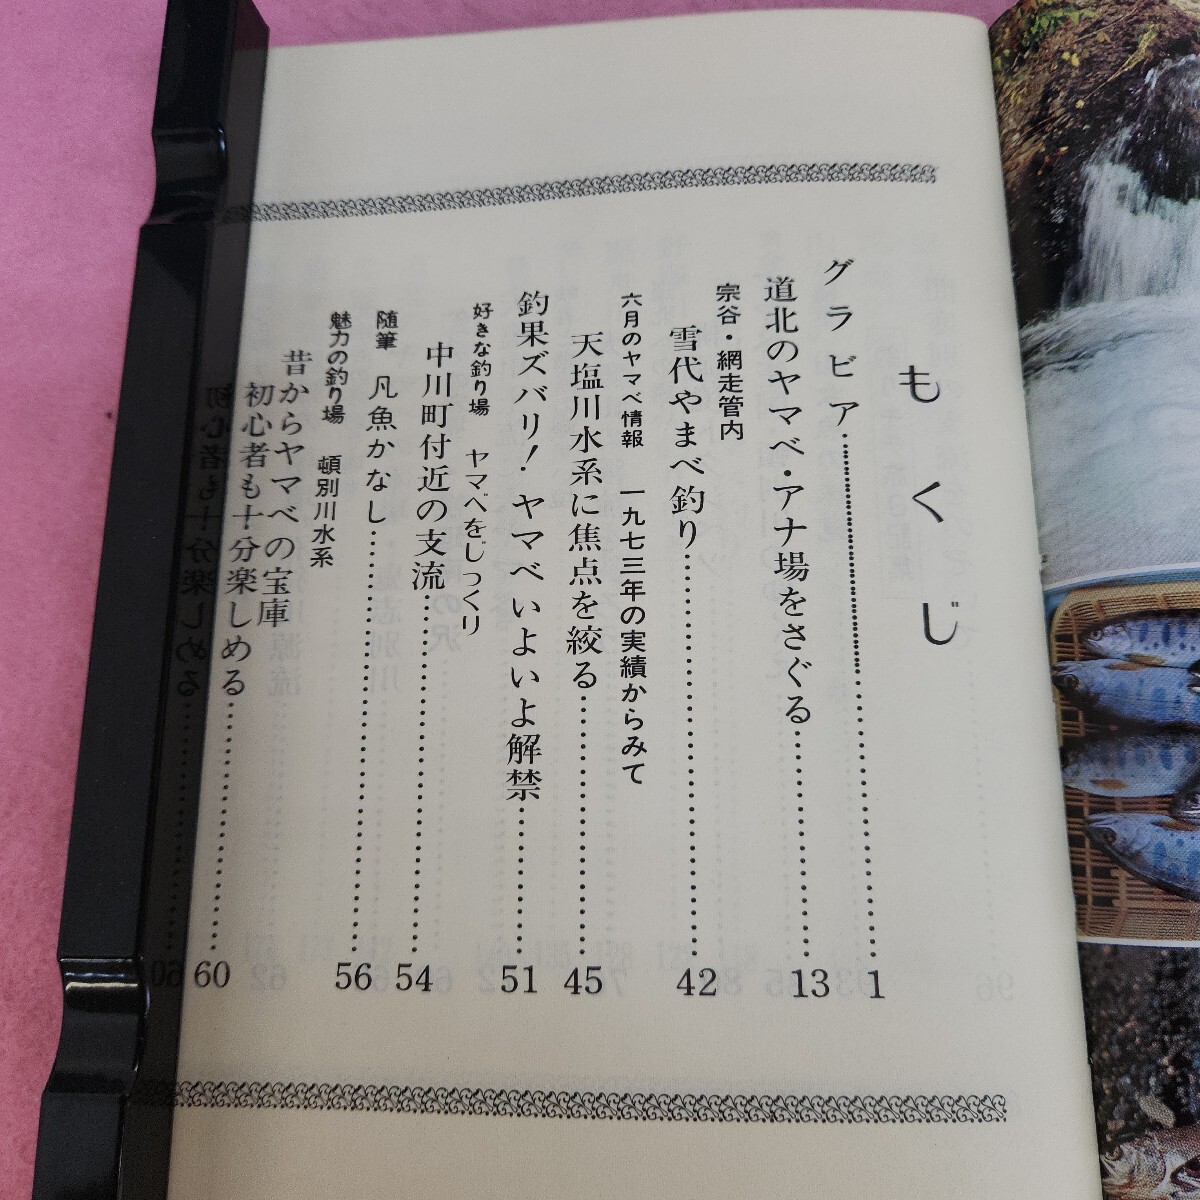 もくじ
グラビア…………………………1
道北のヤマベ・アナ場をさぐる…………13
宗谷・網走管内
雪代やまべ釣り…………………………42
六月のヤマベ情報　一九七三年の実績からみて
天塩川水系に焦点を絞る…………………45
釣果ズバリ！ヤマベいよいよ解禁…………51
好きな釣り場　ヤマベをじっくり
中川町付近の支流…………………………54
随筆　凡魚かなし…………………………56
魅力の釣り場　頓別川水系
昔からヤマベの宝庫
初心者も十分楽しめる……………………60